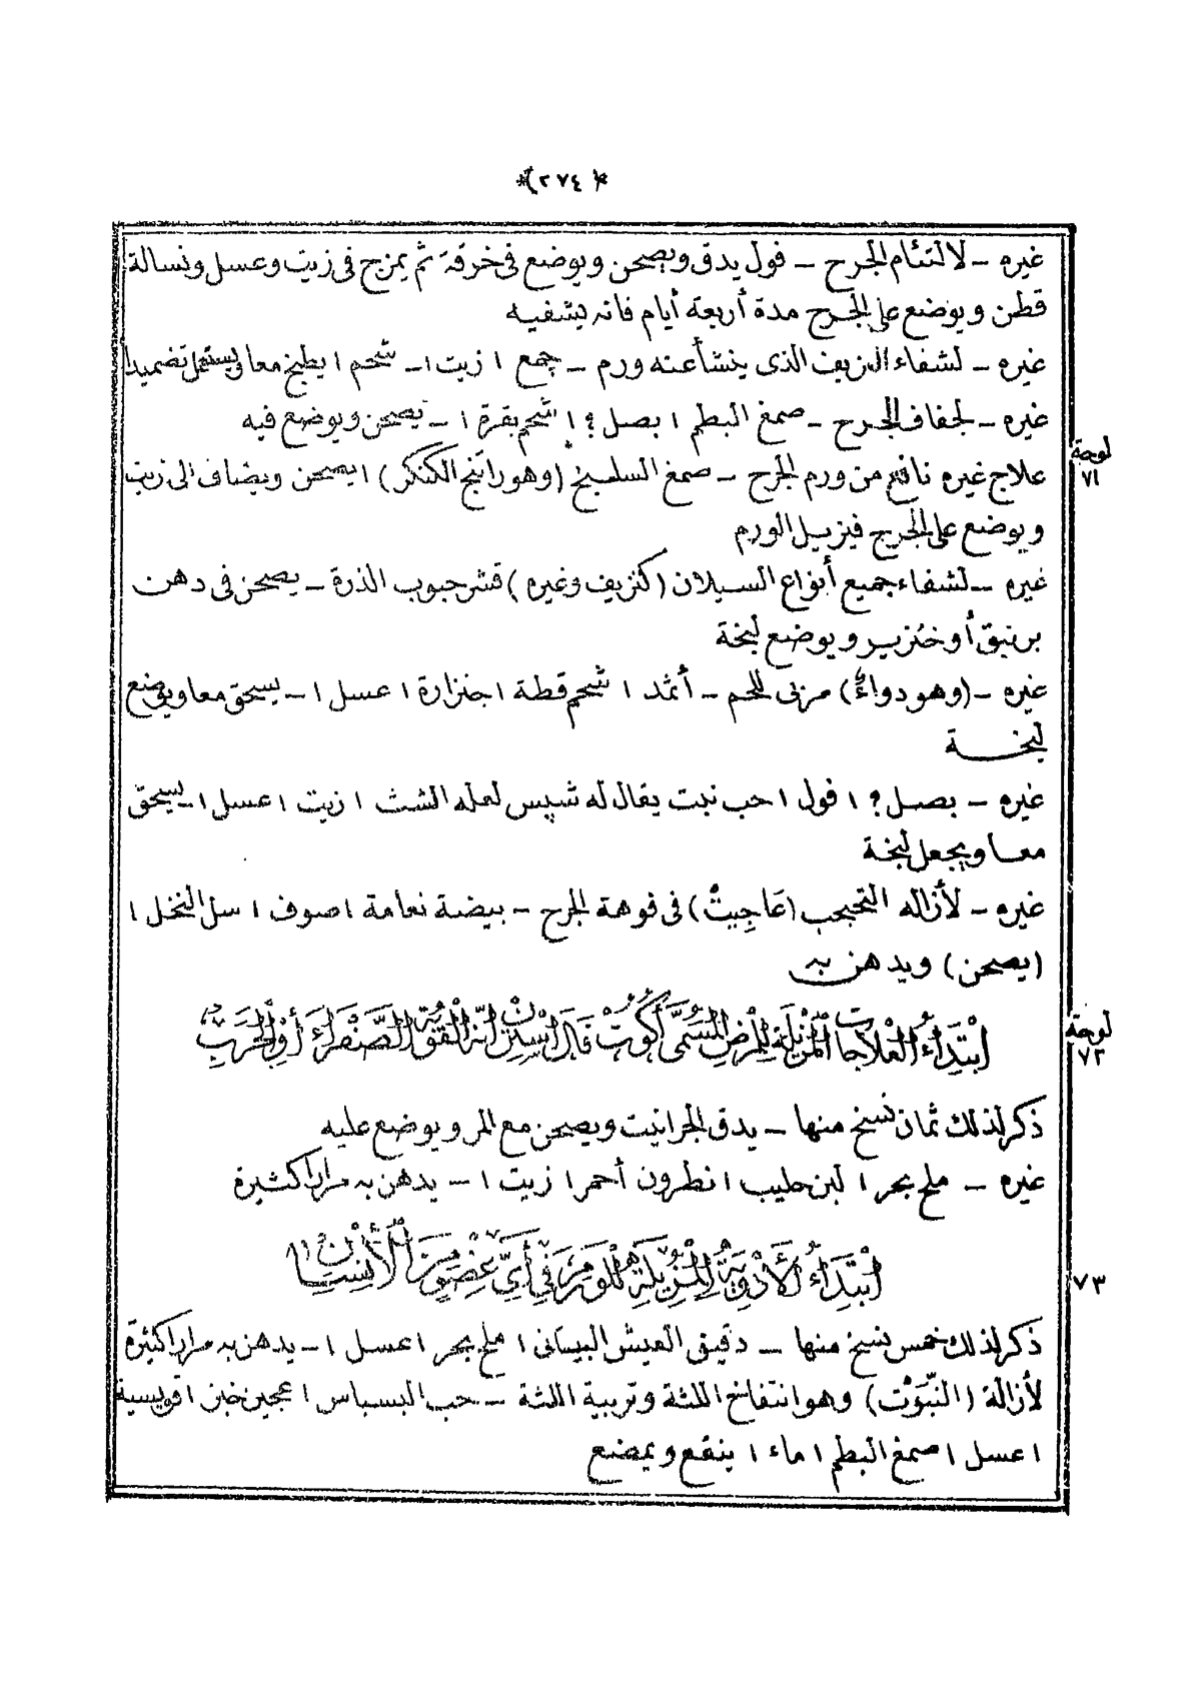 *(٢٧٤)*
غيره - لالتئام الجرح - فول يدق ويصحن ويوضع فى خرقة ثم يمزج فى زيت وعسل ونسالة
قطن ويوضع على الجرح مدة أربعة أيام فانه يشفيه
غيره - لشفاء النزيف الذى ينشأ عنه ورم - جمع ١ زيت ١ - شحم ١ يطبخ معا ويستعمل تضميدا
غيره - لجفاف الجرح - صمغ البطم ١ بصل ؟ ١ شحم بقرة ١ - يصحن ويوضع فيه
لوحة ٧١
علاج غيره نافع من ورم الجرح - صمغ السلعبخ (وهو راتنج الكنكر) ١ يصحن ويضاف الى زيت
ويوضع على الجرح فيزيل الورم
غيره - لشفاء جميع أنواع السيلان (كنزيف وغيره) قشر حبوب الذرة - يصحن فى دهن
برنيق أو خنزير ويوضع لبخة
غيره - (وهو دواءٌ) مربى للحم - أثمد ١ شحم قطة ١ جنزارة ١ عسل ١ - يسحق معا ويوضع
لبخة
غيره - بصل ؟ ١ فول ١ حب نبت يقال له شپس لعله الشث ١ زيت ١ عسل ١ - يسحق
معا ويجعل لبخة
غيره - لأزاله التحبحب (عَاجِيتْ) فى فوهة الجرح - بيضة نعامة ١ صوف ١ سل النخل ١
(يصحن) ويدهن به
لوحة ٧٢
ابْتِدَاءُ الْعْلَاجَاتِ الْمُزِيلَةِ لِلْمَرَضِ الْمُسَمَّى أَكُوُتْ قَالَ اسْتِرْنْ انَّهُ الْقُوْبَةُ الصَّفْرَاءُ أَوْ الْجَرَبُ
ذكر لذلك ثمان نسخ منها - يدق الجرانيت ويصحن مع المر ويوضع عليه
غيره - ملح بحر ١ لبن حليب ١ نطرون أحمر ١ زيت ١ - يدهن به مرارا كثيرة
٧٣
ابْتِدَاءُ الْأَدْوِيَةُ الْمُزِيلَةِ لِلْوَرَمِ فِى أَىِّ عُضْوٍ مِنَ الْأِنْسَانِ
ذكر لذلك خمس نسخ منها - دقيق العيش البيسانى ١ ملح بحر ١ عسل ١ - يدهن به مرارا كثيرة
لأزالة (النِّبَوْت) وهو انتفاخ اللثة وتربية اللثة - حب البسباس ١ عجين خبز ١ قويسية
١ عسل ١ صمغ البطم ١ ماء ١ ينقع ويمضغ